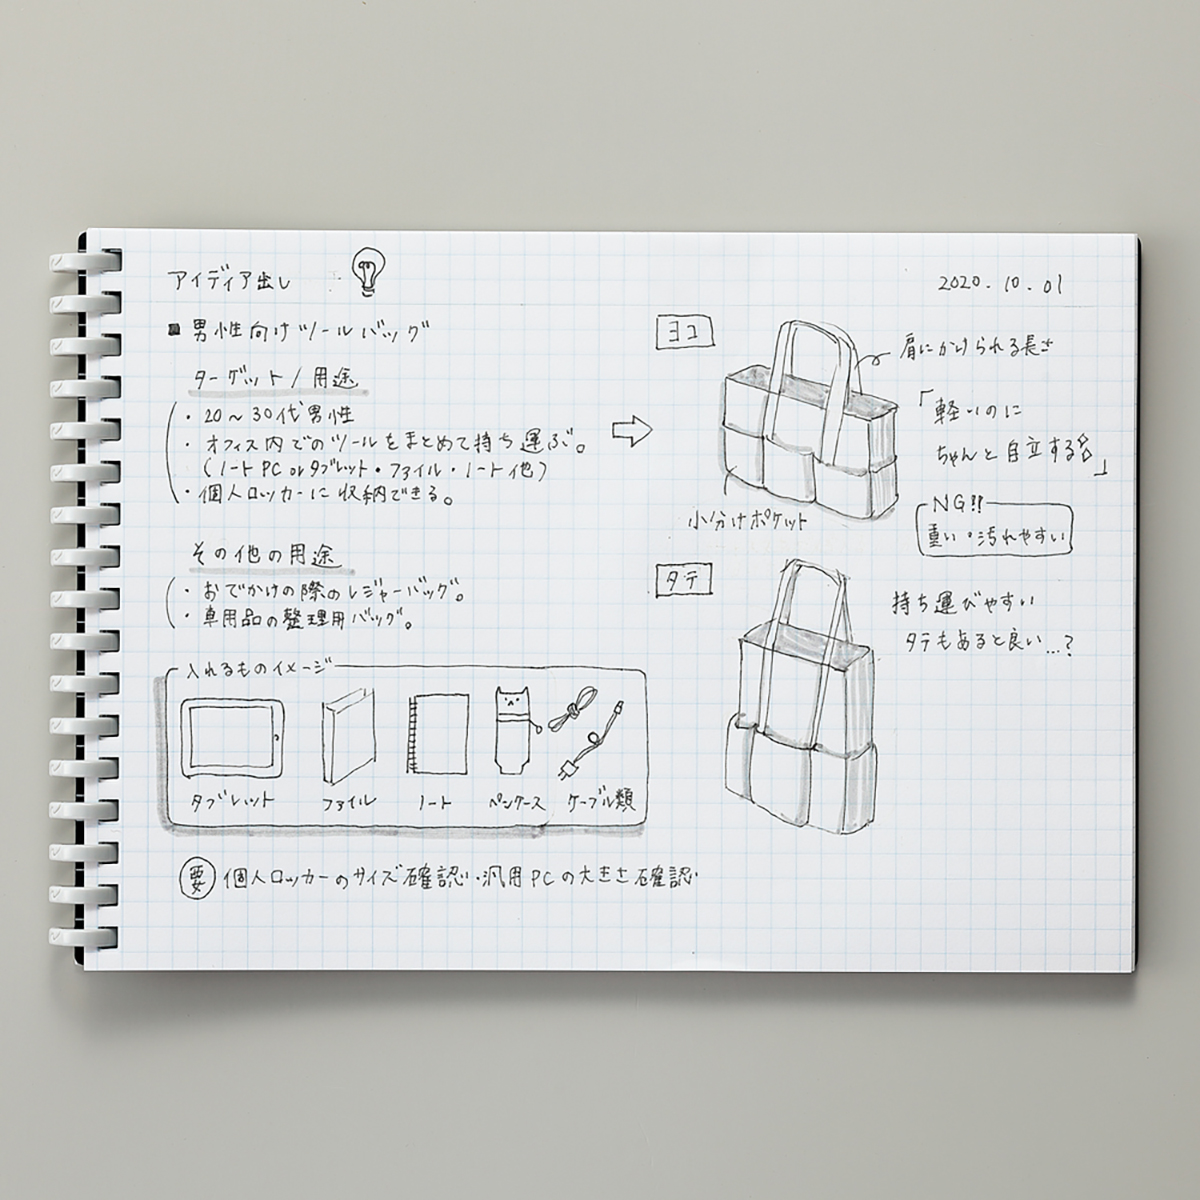 アイディア出し
2020.10.01
■ 男性向けツールバッグ
ターゲット/用途
・20～30代男性
・オフィス内でのツールをまとめて持ち運ぶ。
(ノートPC orタブレット・ファイル・ノート他)
・個人ロッカーに収納できる。
その他の用途
・おでかけの際のレジャーバッグ。
・専用品の整理用バッグ。
入れるものイメージ
タブレット ファイル ノート ペンケース ケーブル類
要 個人ロッカーのサイズ確認・汎用PCの大きさ確認
ヨコ
肩にかけられる長さ
「軽いのに
ちゃんと自立する」
小分けポケット
NG!!
重い・汚れやすい
タテ
持ち運びやすい
タテもあると良い…?